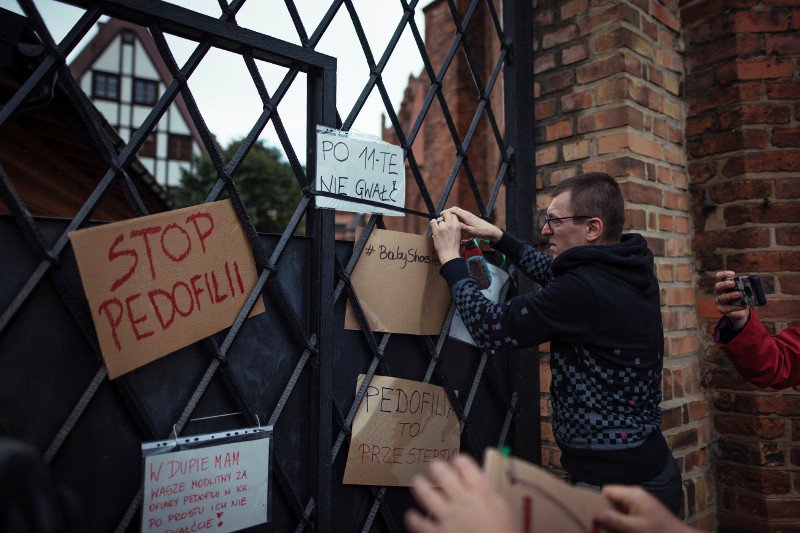 PO 11-TE
NIE GWAŁĆ
STOP
PEDOFILII
#BabyShoes
PEDOFILIA
TO
PRZESTĘPS
W DUPIE MAM
WASZE MODLITWY ZA
OFIARY PEDOFILII W KK.
PO PROSTU ICH NIE
GWAŁĆCIE!